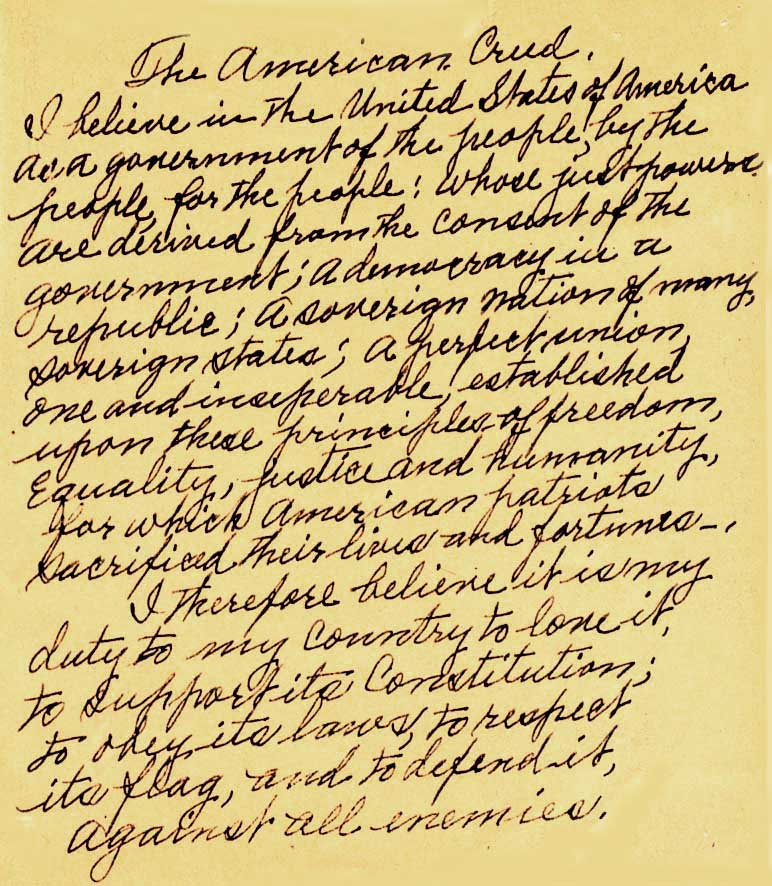 The American Creed.
I believe in the United States of America
as a government of the people, by the
people, for the people: whose just powers
are derived from the consent of the
government; a democracy in a
republic; a soverign nation of many,
soverign states; a perfect union,
one and inseperable, established
upon these principles of freedom,
Equality, justice and humanity,
for which American patriots
sacrificed their lives and fortunes-.
I therefore believe it is my
duty to my country to love it,
to support its Constitution;
to obey its laws, to respect
its flag, and to defend it,
against all enemies.